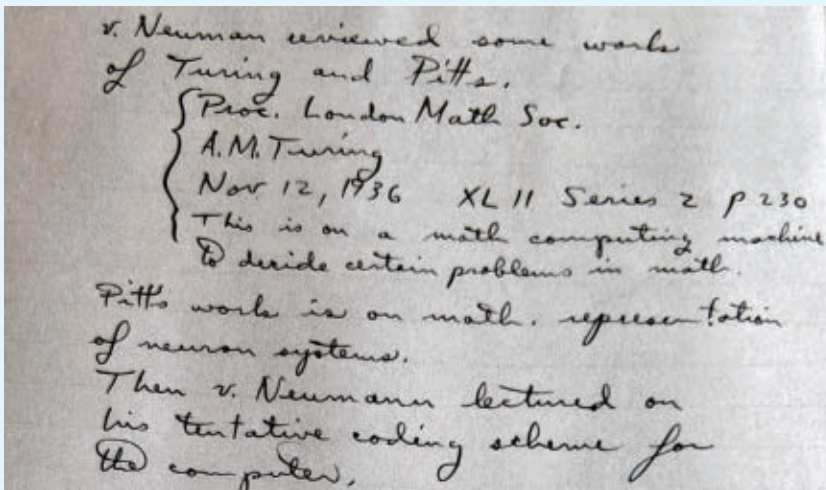 v. Neuman reviewed some work
of Turing and Pitts.
Proc. London Math Soc.
A.M. Turing
Nov 12, 1936 XL II Series 2 p 230
This is on a math computing machine
to decide certain problems in math.
Pitts work is on math. representation
of neuron systems.
Then v. Neumann lectured on
his tentative coding scheme for
the computer.